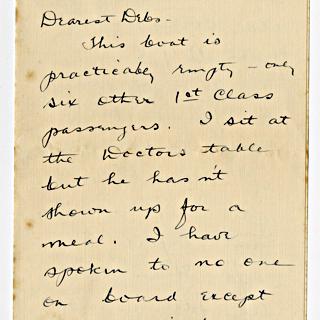 Dearest Debs-
This boat is
practicably empty - only
six other 1st Class
passengers. I sit at
the Doctors table
but he hasn't
shown up for a
meal. I have
spoken to no one
on board except